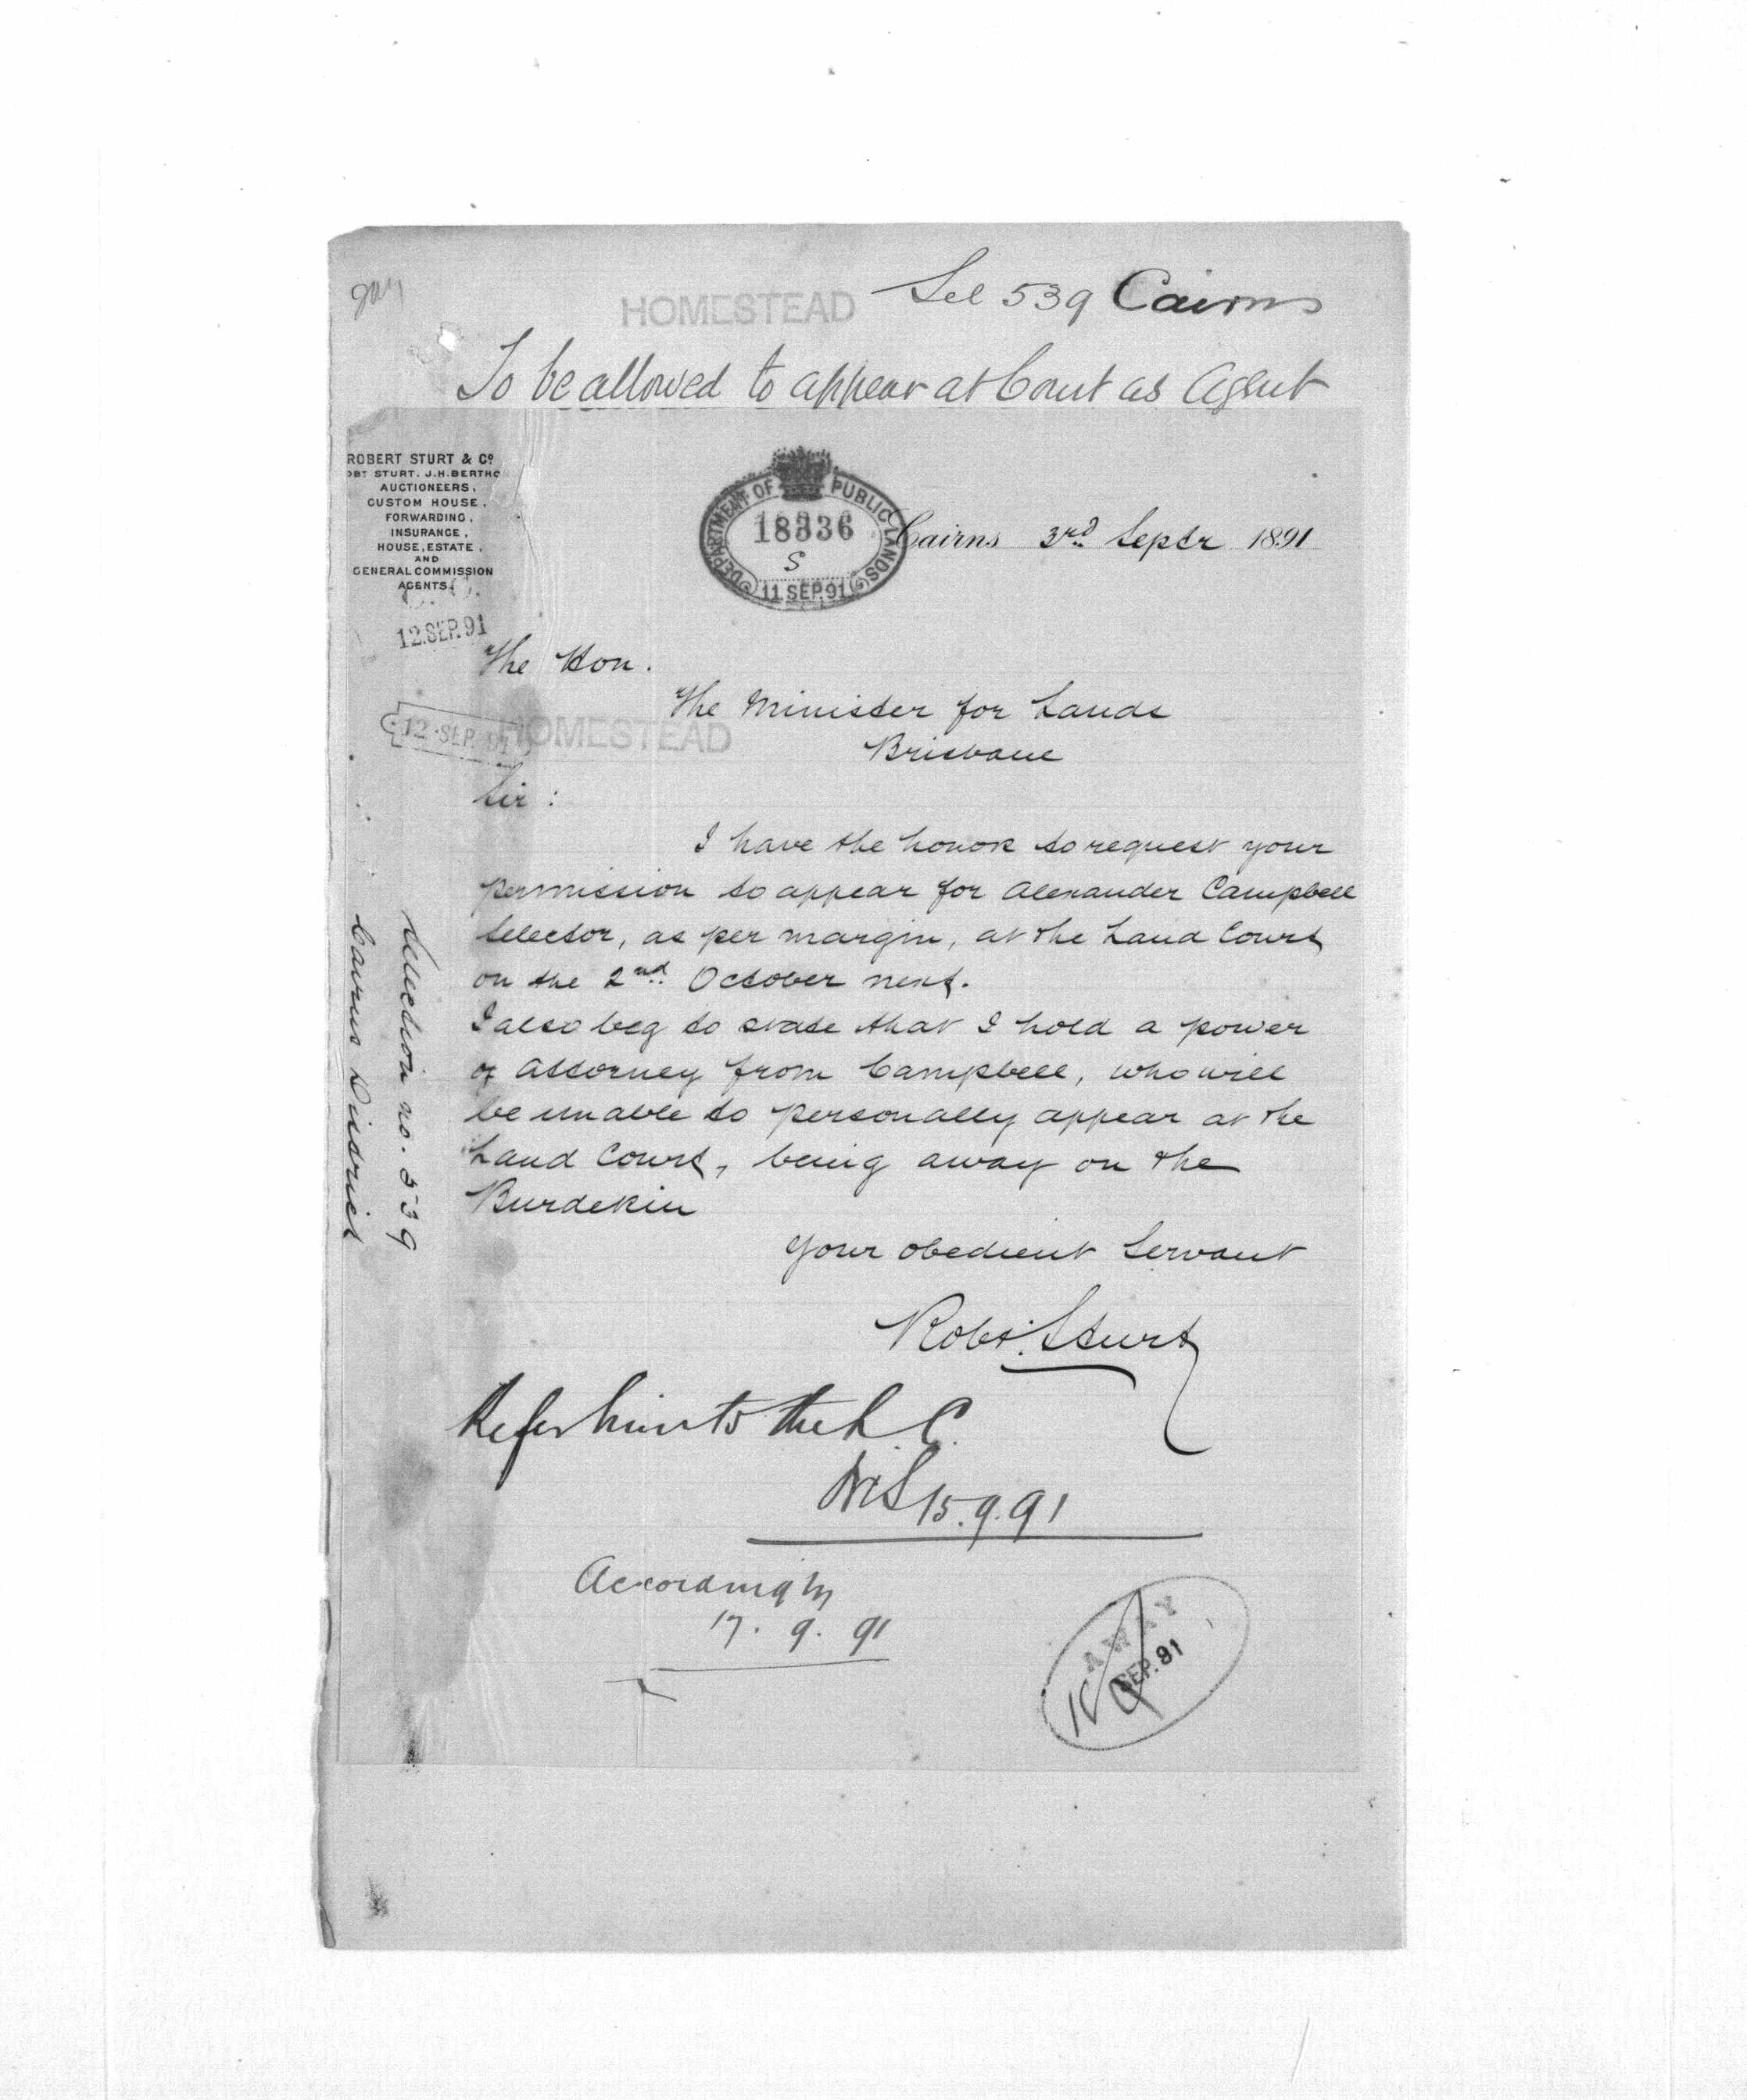 HOMESTEAD
Sel 539 Cairns
To be allowed to appear at Court as Agent
ROBERT STURT & Co
OBT STURT. J.H. BERTHO
AUCTIONEERS,
CUSTOM HOUSE,
FORWARDING,
INSURANCE,
HOUSE, ESTATE,
AND
GENERAL COMMISSION
AGENTS.
DEPARTMENT OF PUBLIC LANDS
18336
S
11 SEP. 91
Cairns 3rd Septr 1891
12. SEP. 91
The Hon.
The Minister for Lands
12. SEP. 91
HOMESTEAD
Brisbane
Sir :
I have the honor to request your
permission to appear for Alexander Campbell
Selector, as per margin, at the Land Court
on the 2nd October next.
I also beg to state that I hold a power
of Attorney from Campbell, who will
be unable to personally appear at the
Land Court, being away on the
Burdekin
Selection no. 539
Cairns District
Your obedient Servant
Robt. Sturt
Refer him to the L. C.
15.9.91
Accordingly
17. 9. 91
AWAY
SEP. 91